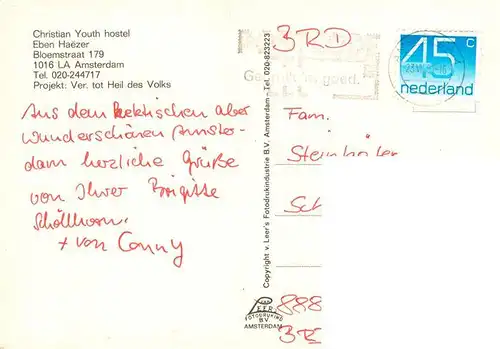 Christian Youth hostel
Eben Haëzer
Bloemstraat 179
1016 LA Amsterdam
Tel. 020-244717
Projekt: Ver. tot Heil des Volks
Aus dem hektischen aber
wunderschönen Amster-
dam herzliche Grüße
von Ihrer Brigitte
Schöllhorn.
+ von Conny
Copyright v. Leer's Fotodrukindustrie B.V. Amsterdam - Tel. 020-823223
LEER
FOTODRUKIND
B.V.
AMSTERDAM
3RD
goed.
45 c
nederland
Fam.
Sch
888